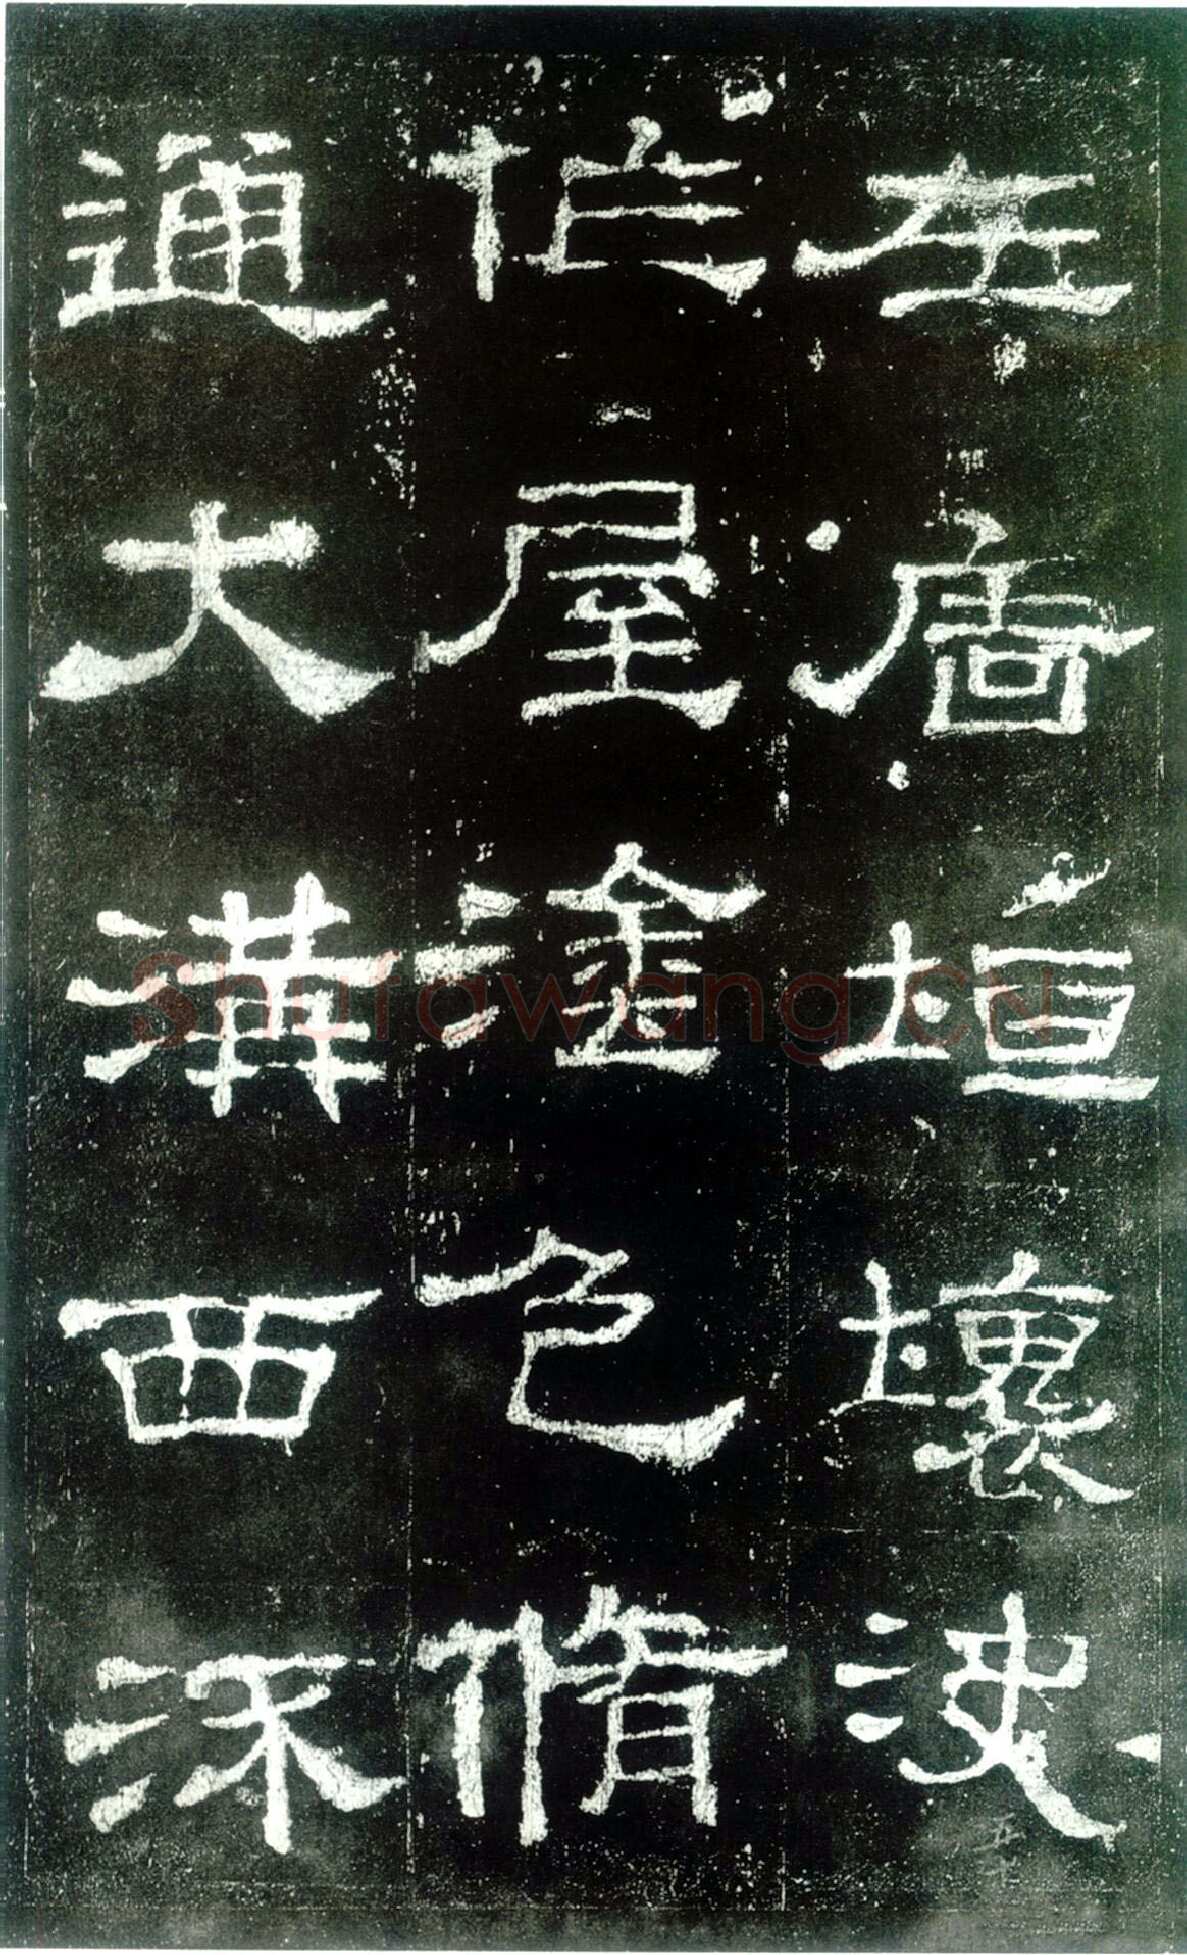 左廧垣壞決
作屋塗色脩
通大溝西流
Shufawang.CN